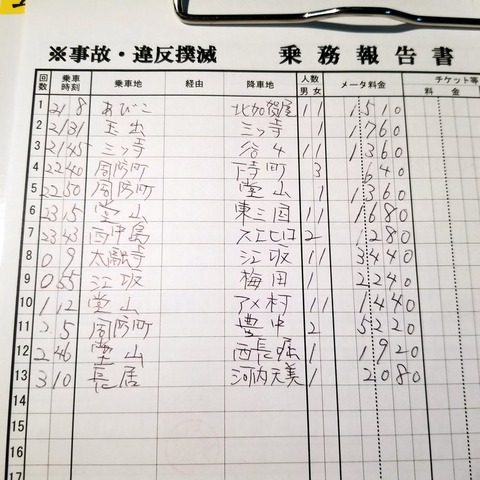 ※事故・違反撲滅 乗務報告書
回数 乗車時刻 乗車地 経由 降車地 人数 男 女 メータ料金 チケット等 料金
1 21 8 あびこ 北加賀屋 1 1 1510
2 21 31 玉出 三ッ寺 1 1 1760
3 21 45 三ッ寺 谷4 1 1 1360
4 22 40 周防町 下寺町 3 640
5 22 50 周防町 堂山 1 1360
6 23 15 堂山 東三国 1 1 1680
7 23 43 西中島 スエヒロ 2 1280
8 0 9 太融寺 江坂 1 1 3440
9 0 55 江坂 梅田 1 2240
10 1 12 堂山 アメ村 1 1 1440
11 2 5 周防町 豊中 2 5220
12 2 46 堂山 西長堀 1 1920
13 3 10 長居 河内天美 1 2080
14
15
16
17